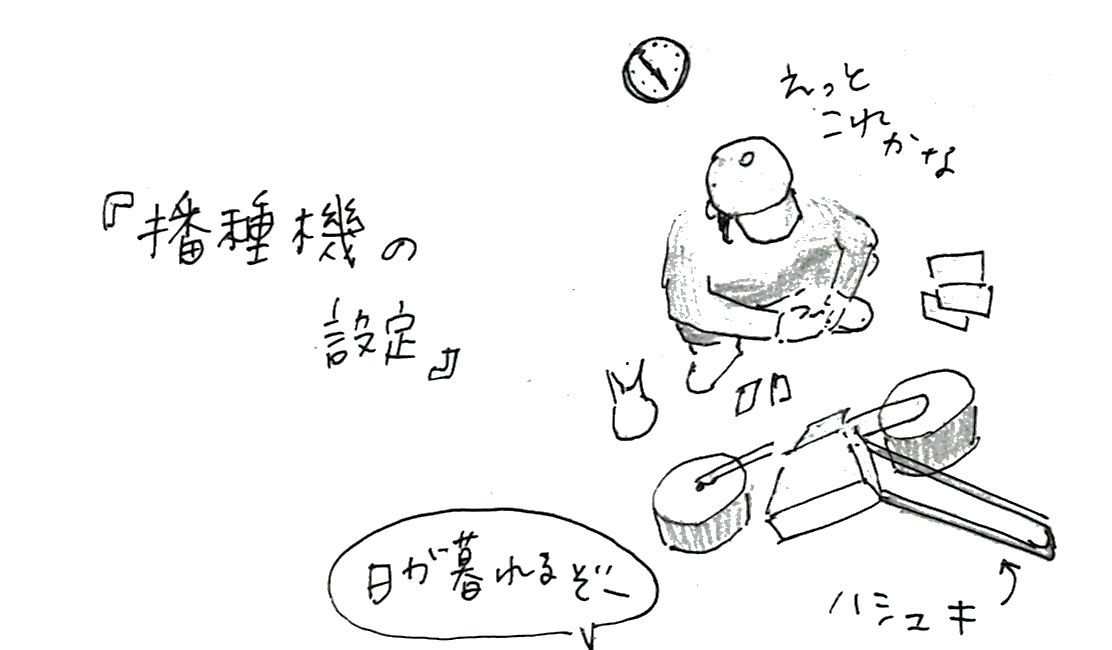 『播種機の
設定』
えっと
これかな
日が暮れるぞー
ハシュキ